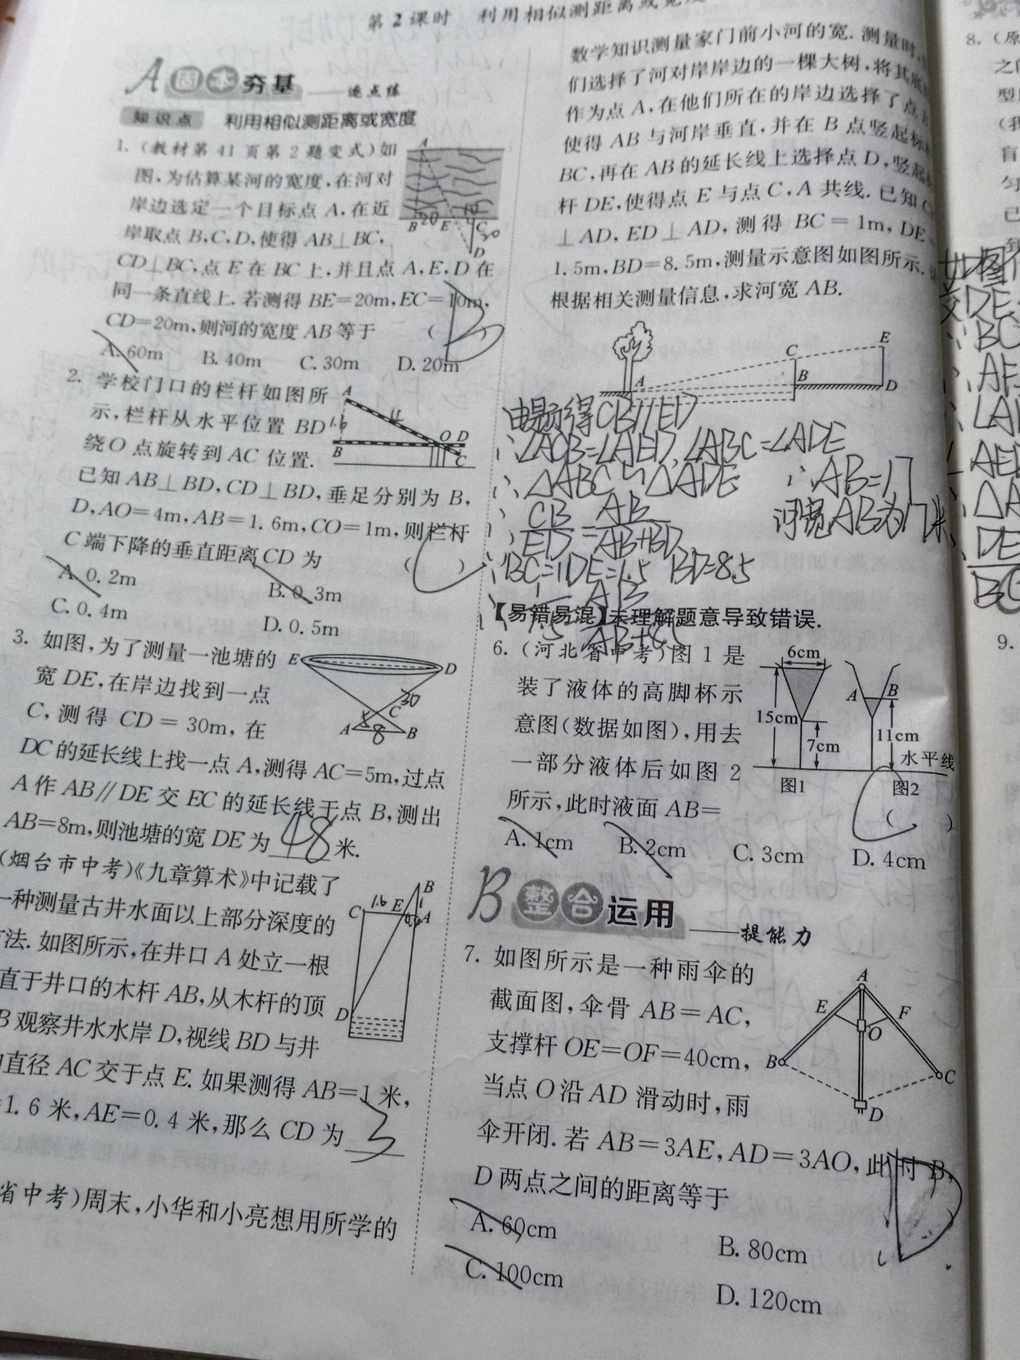 第2课时 利用相似测距离或宽度
A 固本夯基 ——逐点练
知识点 利用相似测距离或宽度
1. (教材第41页第2题变式)如
图,为估算某河的宽度,在河对
岸边选定一个目标点 A,在近
岸取点 B,C,D,使得 AB⊥BC,
CD⊥BC,点 E 在 BC 上,并且点 A,E,D 在
同一条直线上. 若测得 BE=20m,EC=10m,
CD=20m,则河的宽度 AB 等于 ( B )
A. 60m B. 40m C. 30m D. 20m
A
20 10
B E C 20
D
2. 学校门口的栏杆如图所
示,栏杆从水平位置 BD
绕 O 点旋转到 AC 位置.
已知 AB⊥BD,CD⊥BD,垂足分别为 B,
D,AO=4m,AB=1.6m,CO=1m,则栏杆
C 端下降的垂直距离 CD 为 ( C )
A. 0.2m B. 0.3m
C. 0.4m D. 0.5m
A
1.6 4
O D
B C
3. 如图,为了测量一池塘的
宽 DE,在岸边找到一点
C,测得 CD=30m,在
DC 的延长线上找一点 A,测得 AC=5m,过点
A 作 AB∥DE 交 EC 的延长线于点 B,测出
AB=8m,则池塘的宽 DE 为 48 米.
E D
30
C
A 8 B
(烟台市中考)《九章算术》中记载了
一种测量古井水面以上部分深度的
方法. 如图所示,在井口 A 处立一根
直于井口的木杆 AB,从木杆的顶
B 观察井水水岸 D,视线 BD 与井
直径 AC 交于点 E. 如果测得 AB=1 米,
=1.6 米,AE=0.4 米,那么 CD 为 3
B
C 1.6 E A
D
省中考)周末,小华和小亮想用所学的
数学知识测量家门前小河的宽. 测量时,
们选择了河对岸岸边的一棵大树,将其底
作为点 A,在他们所在的岸边选择了点
使得 AB 与河岸垂直,并在 B 点竖起标
BC,再在 AB 的延长线上选择点 D,竖起
杆 DE,使得点 E 与点 C,A 共线. 已知
⊥AD,ED⊥AD,测得 BC=1m,DE=
1.5m,BD=8.5m,测量示意图如图所示.
根据相关测量信息,求河宽 AB.
E
C
A B D
由题可得CB//ED
∴∠ACB=∠AED,∠ABC=∠ADE
∴△ABC∽△ADE ∴AB=17
∴CB/ED=AB/AB+BD 河宽AB为17米
∵BC=1 DE=1.5 BD=8.5
∴1/1.5=AB/AB+8.5
【易错易混】未理解题意导致错误.
6. (河北省中考)图 1 是
装了液体的高脚杯示
意图(数据如图),用去
一部分液体后如图 2
所示,此时液面 AB= ( C )
A. 1cm B. 2cm C. 3cm D. 4cm
6cm
A B
15cm
7cm 11cm
水平线
图1 图2
B 整合运用 ——提能力
7. 如图所示是一种雨伞的
截面图,伞骨 AB=AC,
支撑杆 OE=OF=40cm,
当点 O 沿 AD 滑动时,雨
伞开闭. 若 AB=3AE,AD=3AO,此时 B,
D 两点之间的距离等于 D
A. 60cm B. 80cm
C. 100cm D. 120cm
A
E F
O
B C
D
8. (原
之
型
9.
如图
交DE
∵BC
∴AF
∠A
AED
∴△A
DE
BC